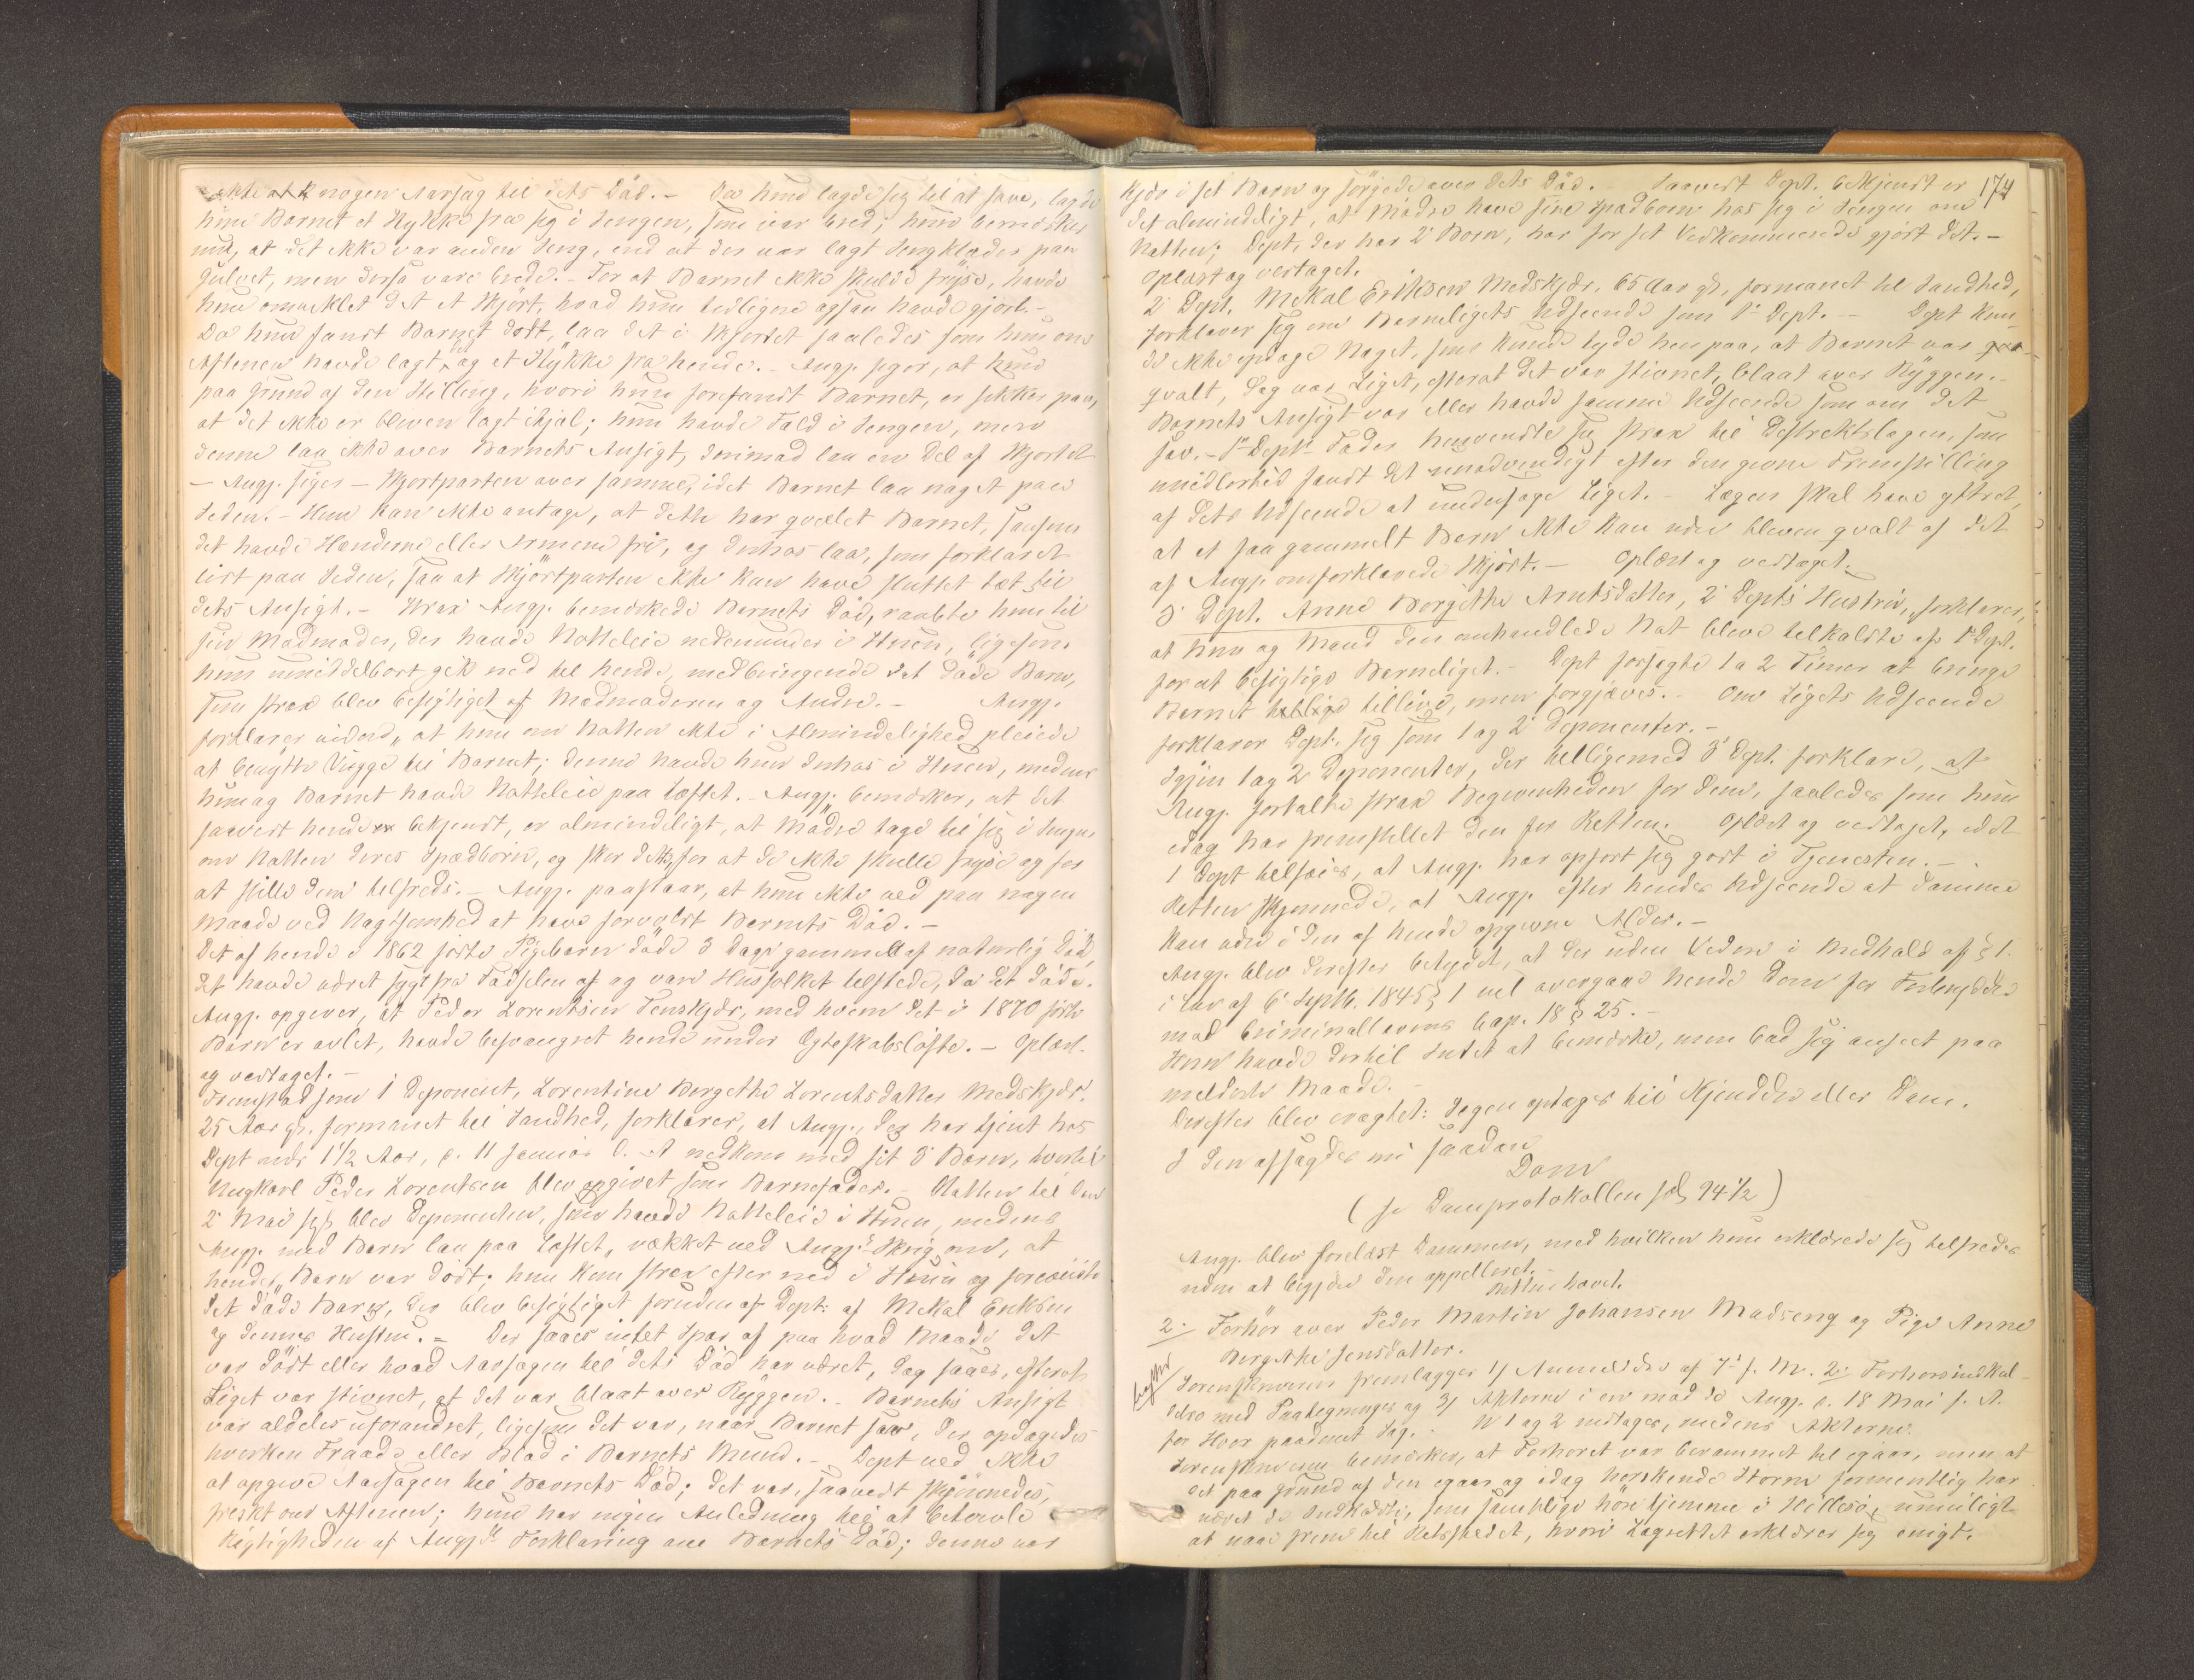 ikke nogen Aarsag til dets Död. – Da hun lagde sig til at sove, lagde
hun Barnet et Stykke fra sig i Sengen, som var bred; hun bemærker
nu, at det ikke var anden Seng, end at der var lagt Sengklæder paa
Gulvet, men disse vare brede. – For at Barnet ikke skulde fryse, havde
hun omviklet det et Skjört, hvad hun tidligere ogsaa havde gjort. –
Da hun fandt Barnet dödt, laa det i Skjörtet saaledes som hun om
Aftenen havde lagt det og et Stykke fra hende. – Angj. siger, at hun
paa Grund af den Stilling, hvori hun forefandt Barnet, er sikker paa,
at det ikke er bleven lagt ihjæl; hun havde Fæld i Sengen, men
denne laa ikke over Barnets Ansigt, derimod laa en Del af Skjörtet
– Angj. siger – Skjortparten over samme, idet Barnet laa noget paa
Siden. – Hun kan ikke antage, at dette har qvælet Barnet, saasom
det havde Hænderne eller Armene fri, og derhos laa, som forklaret
lidt paa Siden, saa at Skjörtparten ikke kan have sluttet tæt til
dets Ansigt. – Strax Angj. bemærkede Barnets Död, raabte hun til
sin Madmoder, der havde Natteleie nedenunder i Stuen, ligesom
hun umiddelbart gik ned til hende, medbringende det döde Barn,
som strax blev besigtiget af Madmoderen og Andre. – Angj.
forklarer videre, at hun om Natten ikke i Almindelighed pleiede
at benytte Vugge til Barnet; denne havde hun derhos i Stuen, medens
hun og Barnet havde Natteleie paa Loftet. – Angj. bemærker, at det
saavidt hende bekjendt, er almindeligt, at Mödre tage til sig i Sengen
om Natten deres Spædbörn, og sker dette, for at de ikke skulle fryse og for
at stille dem tilfreds. – Angj. paastaar, at hun ikke ved paa nogen
Maade ved Uagtsomhed at have forvoldt Barnets Död. –
Det af hende i 1862 födte Pigebarn döde 3 Dage gammelt af naturlig Död,
det havde været sygt fra Födselen af og vare Husfolket tilstede, da det döde.
Angj. opgiver, at Peder Lorentsen Tenskjær, med hvem det i 1870 födte
Barn er avlet, havde besvangret hende under Ægteskabslöfte. – Oplæst
og vedtaget. –
Fremstod som 1 Deponent, Lorentine Bergethe Lorentsdatter Medskjær,
25 Aar gl. formanet til Sandhed, forklarer, at Angj., der har tjent hos
Dept nær 1½ Aar, d. 11 Januar d. A nedkom med sit 3' Barn, hvortil
Ungkarl Peder Lorentsen blev opgivet som Barnefader. – Natten til den
2' Mai sidstl. blev Deponenten, som havde Natteleie i Stuen, medens
Angj. med Barn laa paa Loftet, vækket ved Angj's Skrig om, at
hendes Barn var dödt; hun kom strax efter ned i Stuen og foreviste
det döde Barn, der blev besigtiget foruden af Dept: af Mekal Eriksen
og dennes Hustru. – Der saaes intet Spor af paa hvad Maade det
var dödt eller hvad Aarsagen til dets Död har været, dog saaes, efterat
Liget var stivnet, at det var blaat over Ryggen. – Barnets Ansigt
var aldeles uforandret, ligesom det var, naar Barnet sov, der opdagedes
hverken Fraade eller Blod i Barnets Mund. – Dept ved ikke
at opgive Aarsagen til Barnets Död; det var, saavidt skjönnedes,
friskt om Aftenen; hun har ingen Anledning til at betvivle
Rigtigheden af Angj's Forklaring om Barnets Död; denne var
kjær i sit Barn og sörgede over dets Död. – Saavidt Dept. bekjendt er
174
det almindeligt, at Mödre have sine Spædbörn hos sig i Sengen om
Natten; Dept. der har 2 Börn, har for sit Vedkommende gjort det. –
Oplæst og vedtaget.
2' Dept. Mekal Eriksen Medskjær, 65 Aar gl., formanet til Sandhed,
forklarer sig om Barneligets Udseende som 1' Dept. – Dept kun-
de ikke opdage Noget, som kunde tyde hen paa, at Barnet var
qvalt, dog var Liget, efterat det var stivnet, blaat over Ryggen. –
Barnets Ansigt var eller havde samme Udseende som om det
sov. – 1' Depts Fader henvendte sig strax til Distriktslægen, som
imidlertid fandt det unödvendigt efter den givne Fremstilling
af dets Udseende at undersöge Liget. – Lægen skal have yttret,
at et saa gammelt Barn ikke kan være bleven qvalt af det
af Angj. omforklarede Skjört. – Oplæst og vedtaget.
3' Dept. Anne Bergethe Arntsdatter, 2' Depts Hustru, forklarer,
at hun og Mand den omhandlede Nat bleve tilkaldte af 1' Dept.
for at besigtige Barneliget. – Dept forsögte 1 a 2 Timer at bringe
Barnet tillive, men forgjæves. – Om Ligets Udseende
forklarer Dept. sig som 1 og 2' Deponenter. –
Igjen 1 og 2 Deponenter, der tilligemed 3' Dept. forklare, at
Angj. fortalte strax Begivenheden for dem, saaledes som hun
idag har fremstillet den for Retten. Oplæst og vedtaget, idet
1 Dept tilföier, at Angj. har opfört sig godt i Tjenesten. –
Retten skjönnede, at Angj. efter hendes Udseende at dömme
kan være i den af hende opgivne Alder. –
Angj. blev derefter betydet, at der uden Videre i Medhold af § 1.
i Lov af 6' Septb. 1845 § 1 vil overgaae hende Dom for Forbrydelse
mod Criminallovens Cap. 18 § 25. –
Hun havde dertil Intet at bemærke, men bad sig anseet paa
mildeste Maade. –
Derefter blev eragtet: Sagen optages til Kjendelse eller Dom.
I den afsagdes nu saadan
Dom
(se Domprotokollen fol. 94½)
Angj. blev forelæst Dommen, med hvilken hun erklærede sig tilfreds
uden at begjære den appelleret. –
Retten hævet.
2. Forhör over Peder Martin Johansen Madseng og Pige Anne
Bergethe Jensdatter.
Sorenskriveren fremlægger 1) Anmeldelse af 7' f. M. 2) Forhörsindkal-
delse med Paategninger og 3) Akterne i en mod de Angj. d. 18 Mai f. A.
for Hoer paadömt Sag. – No 1 og 2 indtages, medens Akterne.
Sorenskriveren bemærker, at Forhöret var berammet til igaar, men at
det paa Grund af den igaar og idag herskende Storm formentlig har
været de Indkaldte, som samtlige höre hjemme i Hillesö, umuligt
at naae frem til Retsstedet, hvori Lagrettet erklærer sig enigt.